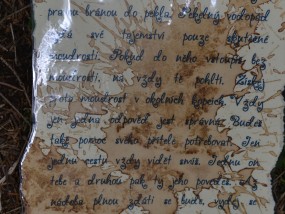 pravou bránou do pekla. Pekelný vodopád
své tajemství pouze skutečné
moudrosti. Pokud do něho vstoupíš bez
moudrosti, na vždy tě pohltí. Získej
moudrost v okolních kopcích. Vždy
jen jedna odpověď jest správná. Budeš
také pomoc svého přítele potřebovat. Jen
jednu cestu vždy vidět smíš. Jednu on
tobě a druhou pak ty jeho povedeš.
nádoba plnou zdáti se bude, vydej se